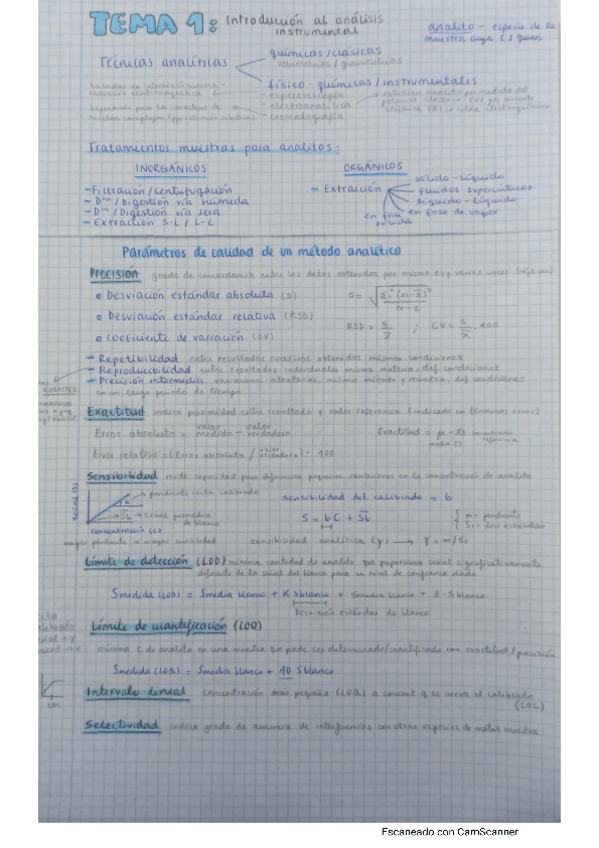 TEMA 1: Introducción al análisis instrumental
analito - especie de la muestra cuya [ ] quiero
Técnicas analíticas
químicas/clásicas
volumetrías/gravimetrías
físico-químicas/instrumentales
- espectroscopia
- electroanalítica
- cromatografía
Tratamientos muestras para analitos:
INORGÁNICOS
- Filtración/centrifugación
- Dⁿ/Digestión vía húmeda
- Dⁿ/Digestión vía seca
- Extracción S-L / L-L
ORGÁNICOS
- Extracción
sólido-líquido
fluidos supercríticos
líquido-líquido
en fase de vapor
en fase sólida
Parámetros de calidad de un método analítico
PRECISIÓN grado de concordancia entre los datos obtenidos por mismo exp varias veces
• Desviación estándar absoluta (S)
• Desviación estándar relativa (RSD)
RSD = s/x̄ ; CV = s/x̄ · 100
• Coeficiente de variación (CV)
- Repetibilidad entre resultados sucesivos obtenidos mismas condiciones
- Reproducibilidad entre resultados individuales misma muestra, dif condiciones
- Precisión intermedia aleatorias, mismo método y muestra, dif condiciones
en un largo periodo de tiempo
Exactitud indica proximidad entre resultado y valor referencia (indicado en términos error)
Error absoluto = valor medido - valor verdadero
Error relativo = (Error absoluto / valor verdadero) · 100
Sensibilidad mide capacidad para diferenciar pequeñas variaciones en la concentración de analito
Señal (S)
pendiente recta calibrado
señal promedio de blanco
concentración (c)
sensibilidad del calibrado = b
S = bC + Sb
m = pendiente
mayor pendiente = mayor sensibilidad
sensibilidad analítica (γ) → γ = m/Ss
Límite de detección (LOD) mínima cantidad de analito que proporciona señal significativamente
diferente de la señal del blanco para un nivel de confianza dado
Smedida (LOD) = Smedia blanco + K Sblanco = Smedia blanco + 3 · Sblanco
Desviación estándar de blanco
Límite de cuantificación (LOQ)
mínima C de analito en una muestra que puede ser determinado/cuantificado con exactitud/precisión
Smedida (LOQ) = Smedia blanco + 10 Sblanco
Intervalo lineal concentración más pequeña (LOQ) a concent q se curva el calibrado
(LOL)
LOL
Selectividad indica grado de ausencia de interferencias con otras especies de matriz muestra
Escaneado con CamScanner